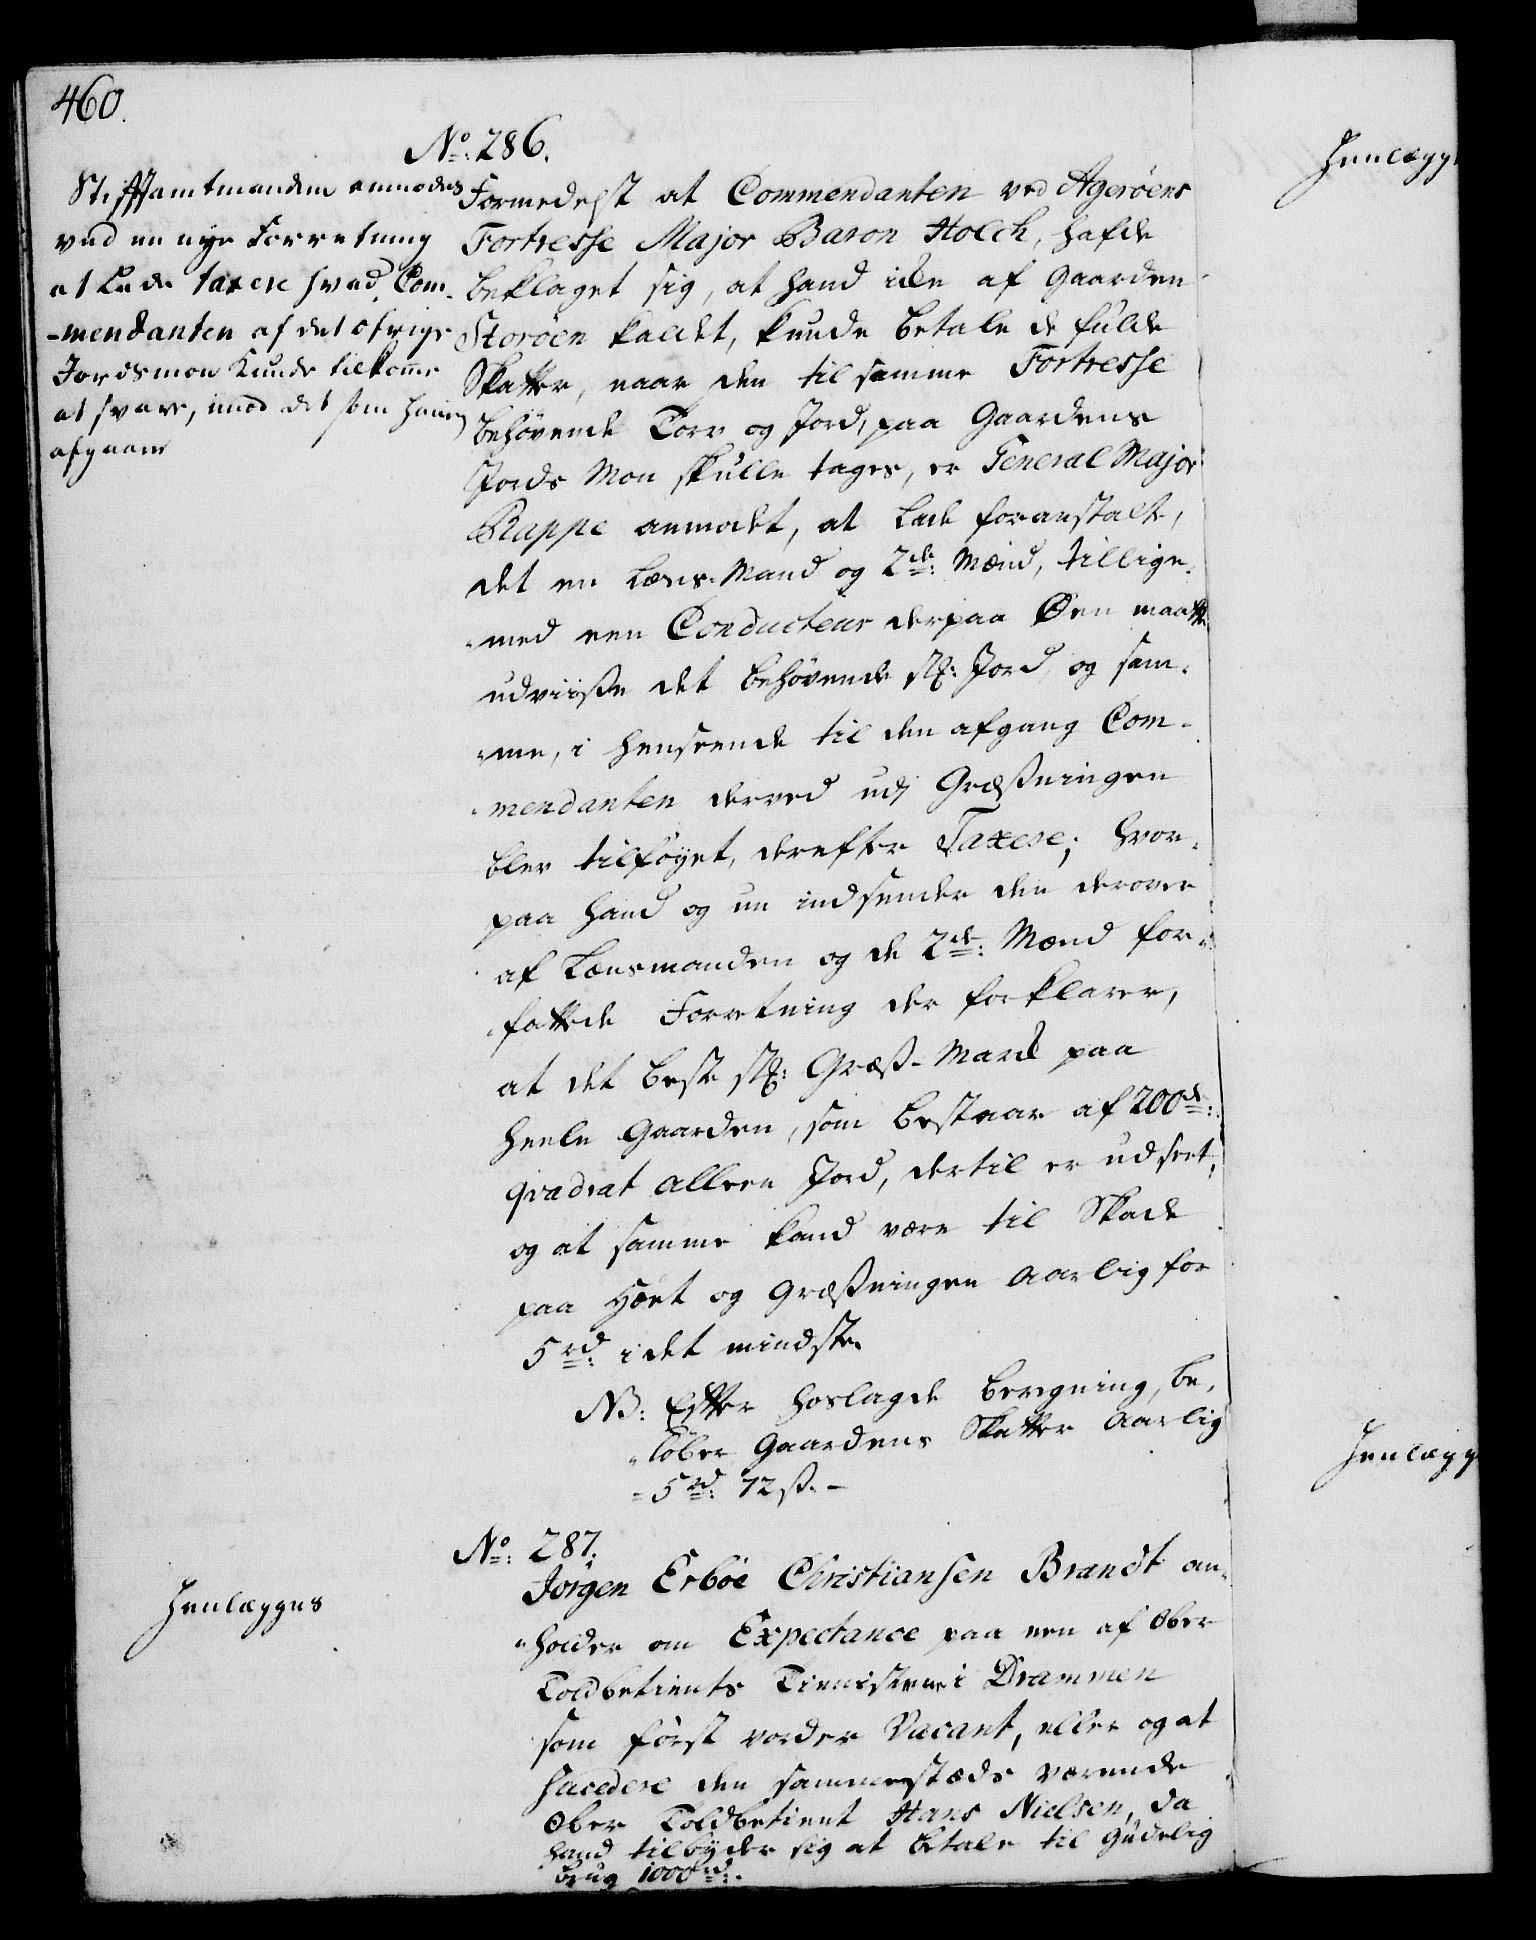 460.
No: 286.
Stiftamtmanden anmodes
ved en nye Forretning
at lade taxere hvad Com-
-mendanten af det øfrige
Jordsmon kunde tilkomme
at svare, imod det som herved
afgaaer
Formedelst at Commendanten ved Agerøens
Fortresse Major Baron Holck, hafde
beklaget sig, at hand icke af Gaarden
Storøen kaldet, kunde betale de fulde
Skatter, naar den til samme Fortresse
behøvende Torv og Jord, paa Gaardens
Jords Mon skulle tages, er General Major
Rappe anmodet, at lade foranstalte,
det en Lens-Mand og 2de: Mænd, tillige-
-med een Conducteur derpaa Øen maatte
udviiße det behøvende st: Jord, og sam-
-me, i henseende til den afgang Com-
-mendanten derved udj Græßningen
blev tilføyet, derefter Taxere; hvor-
paa hand og nu indsender den derover
af Lensmanden og de 2de: Mænd for-
-fattede Forretning der forklarer,
at det beste st: Græß-Mark paa
heele Gaarden, som bestaar af 200de:
qvadrat Alleen Jord, dertil er udseet,
og at samme kand være til Skade
paa Høet og Græßningen Aarlig for
5 rd: i det mindste.
NB: Efter hoslagde beregning, be-
-løber Gaardens Skatter Aarlig
-5 rd: 72 ß. -
No: 287.
Henlægges
Jørgen Erboe Christiansen Brandt an-
-holder om Expectance paa een af Ober
Toldbetients Tienisterne i Drammen
som først vorder Vacant, eller og at
succedere den sammestæds værende
Ober Toldbetient Hans Nielsen, da
hand tilbyder sig at betale til Gudelig
Brug 1000 rd:.
Henlægg
Henlægg